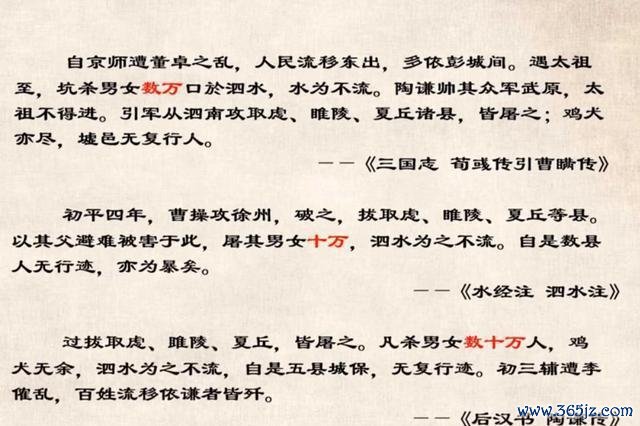 自京师遭董卓之乱，人民流移东出，多依彭城间。遇太祖
至，坑杀男女数万口於泗水，水为不流。陶谦帅其众军武原，太
祖不得进。引军从泗南攻取虑、睢陵、夏丘诸县，皆屠之；鸡犬
亦尽，墟邑无复行人。
－－《三国志 荀彧传引曹瞒传》
初平四年，曹操攻徐州，破之，拔取虑、睢陵、夏丘等县。
以其父避难被害于此，屠其男女十万，泗水为之不流。自是数县
人无行迹，亦为暴矣。
－－《水经注 泗水注》
过拔取虑、睢陵、夏丘，皆屠之。凡杀男女数十万人，鸡
犬无余，泗水为之不流，自是五县城保，无复行迹。初三辅遭李
傕乱，百姓流移依谦者皆歼。
－－《后汉书 陶谦传》
www.365jz.com